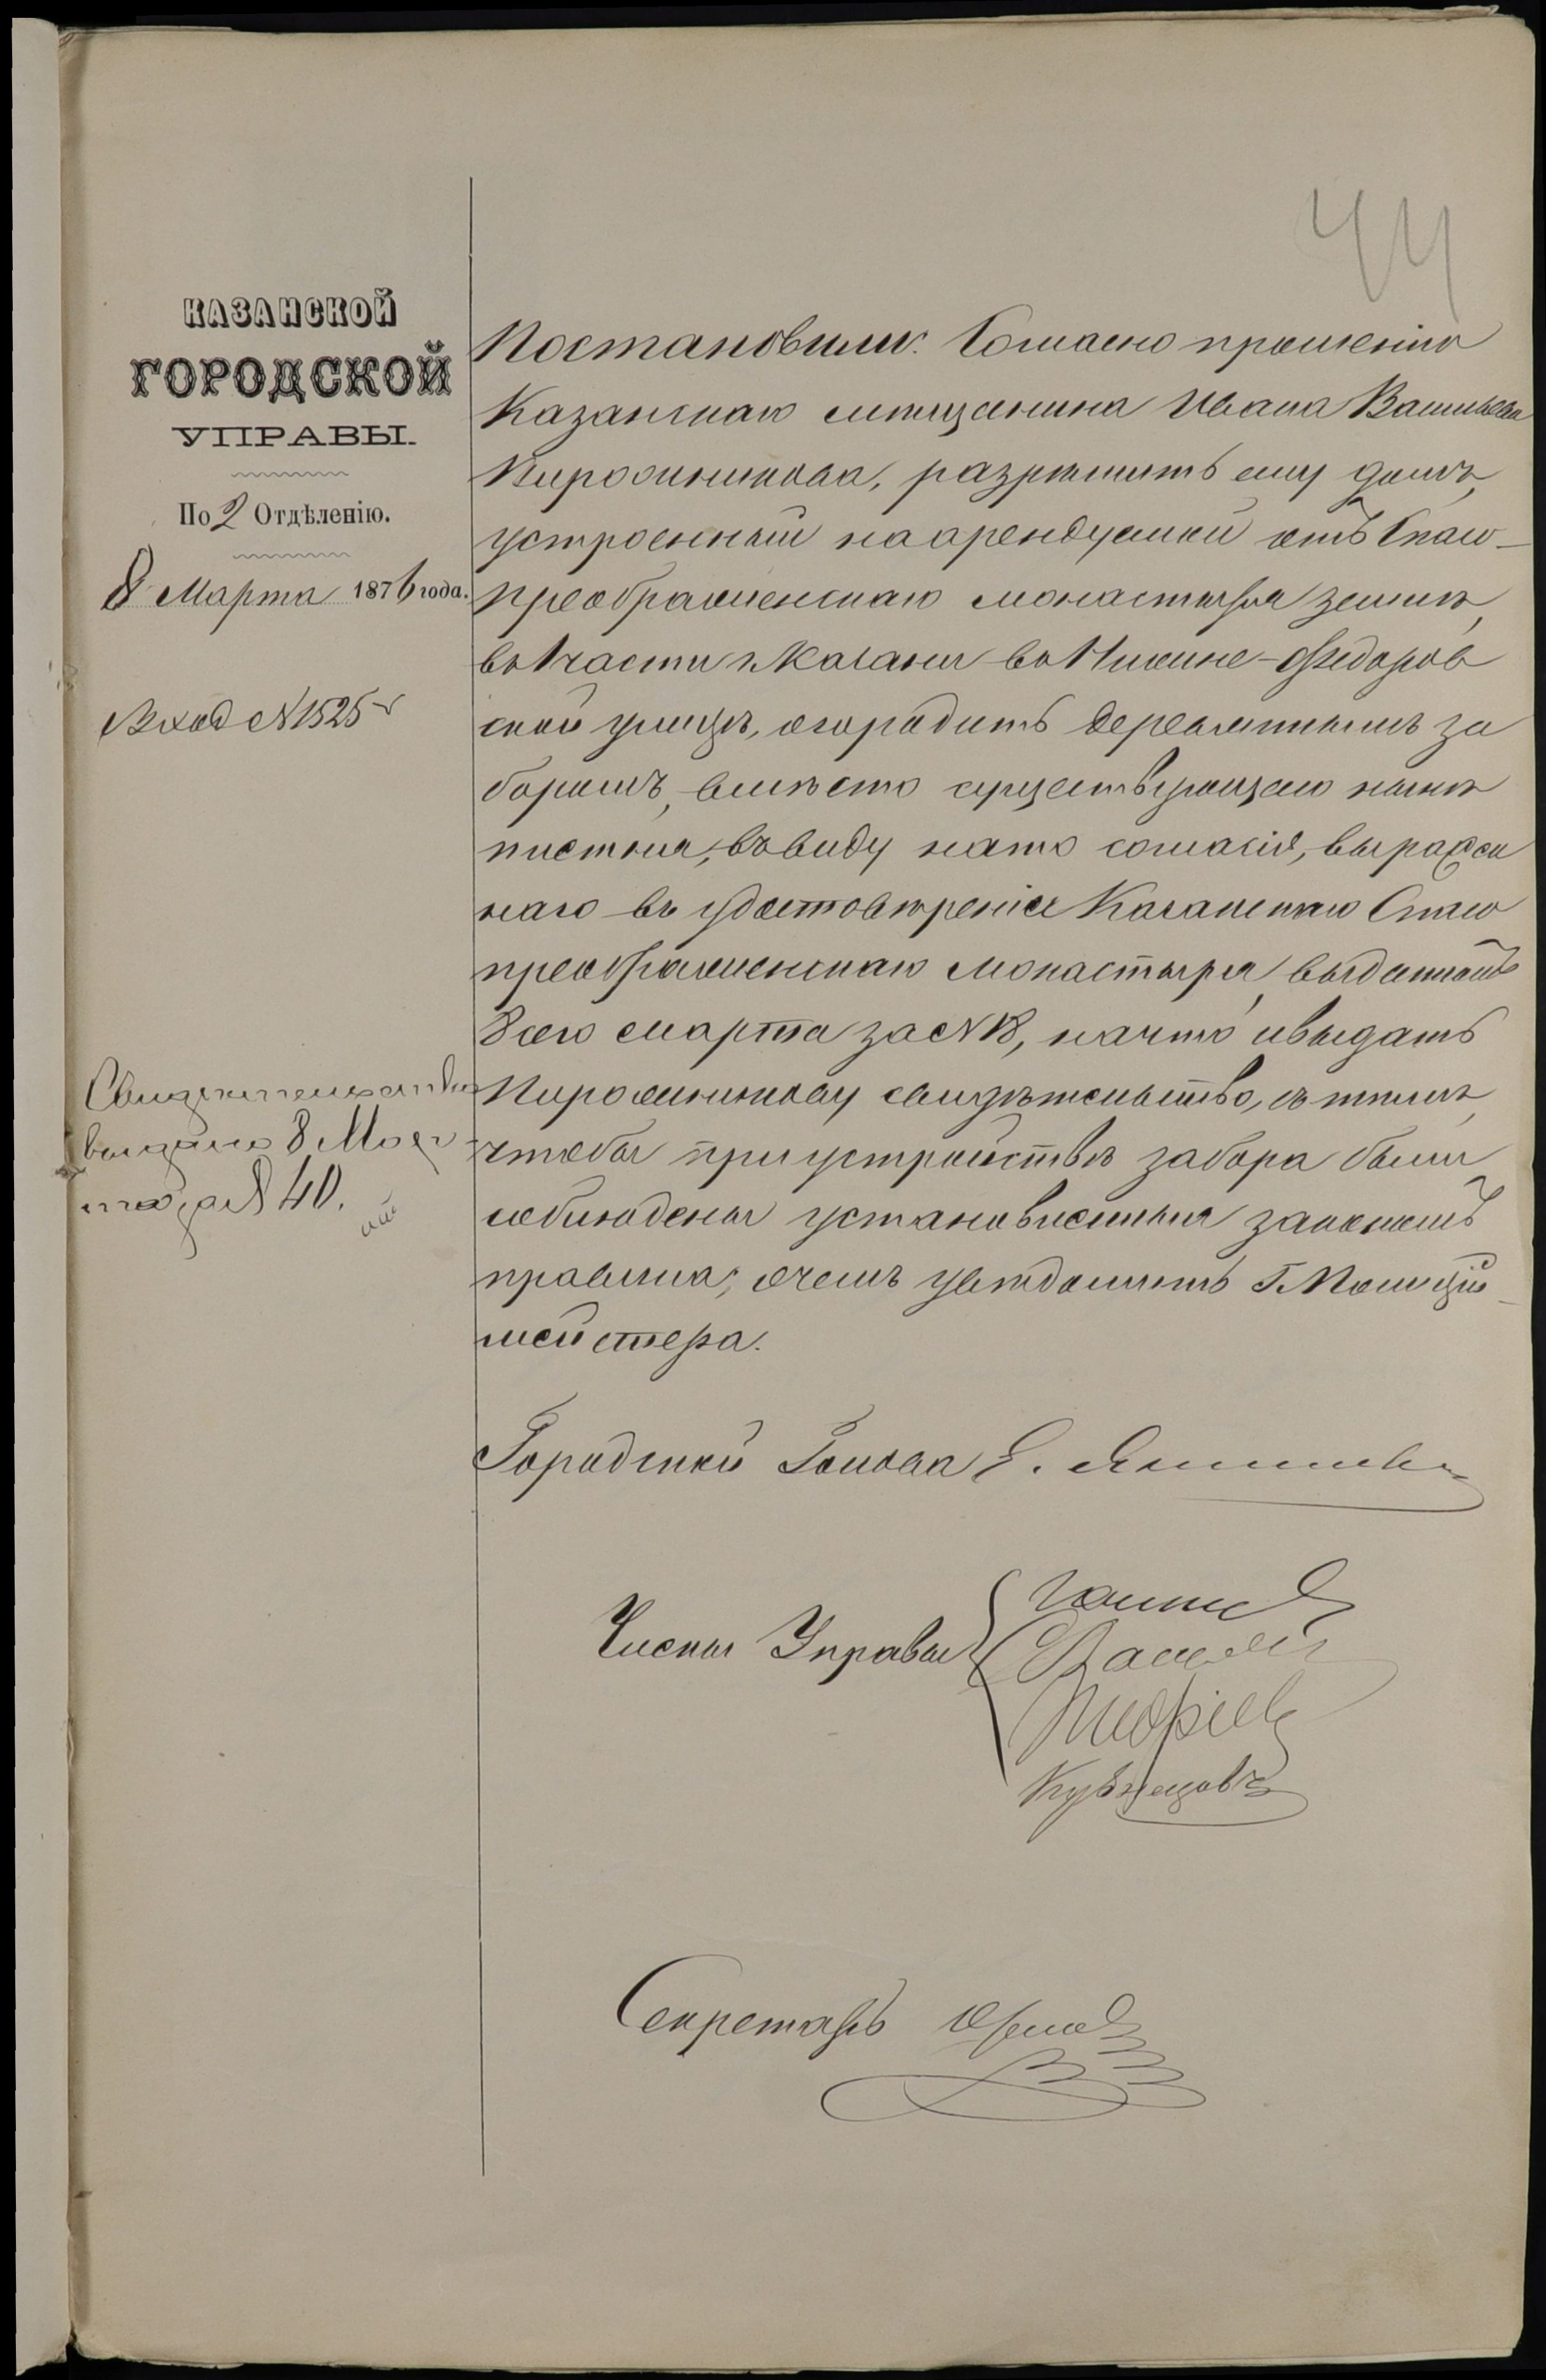 44
КАЗАНСКОЙ
ГОРОДСКОЙ
УПРАВЫ.
По 2 Отдѣленію.
8 Марта 1876 года.
Вход №1525
Свидѣтельство
выдано 8 Мар
та за № 40.
Постановили: Согласно прошенію
Казанскаго мѣщанина Ивана Васильева
Пирожникова, разрѣшить ему домъ,
устроенный на арендуемой отъ Спасо-
преображенскаго монастыря земли,
въ 1 части г. Казани въ Нижне-Ѳедоров
ской улицѣ, огородить деревяннымъ за
боромъ, вмѣсто существующаго нынѣ
плетня, въ виду на то согласія, выражен
наго въ удостовѣреніи Казанскаго Спасо
преображенскаго монастыря, выданномъ
8 сего марта за № 18, на что и выдать
Пирожникову свидѣтельство, съ тѣмъ,
чтобы при устройствѣ забора были
соблюдены установленныя закономъ
правила; о чемъ увѣдомить Г. Полиціи-
мейстера.
Городской Голова Е.
Члены Управы
Кузнецовъ
Секретарь